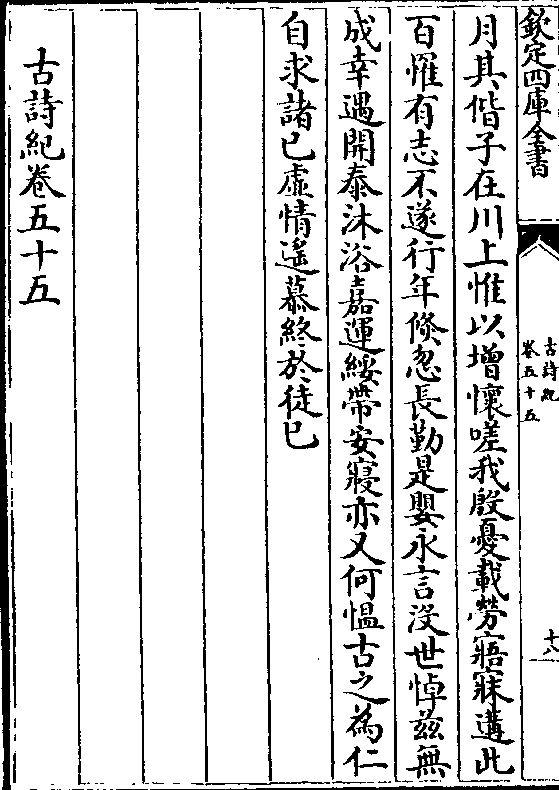 欽定四庫全書
古詩紀
卷五十五
十八
月其偕子在川上惟以增懷嗟我殷憂載勞寤寐遘此
百罹有志不遂行年倐忽長勤是嬰永言没世悼兹無
成幸遇開泰沐浴嘉運緩帶安寢亦又何慍古之為仁
自求諸已虚情遙慕終於徒已
古詩紀卷五十五